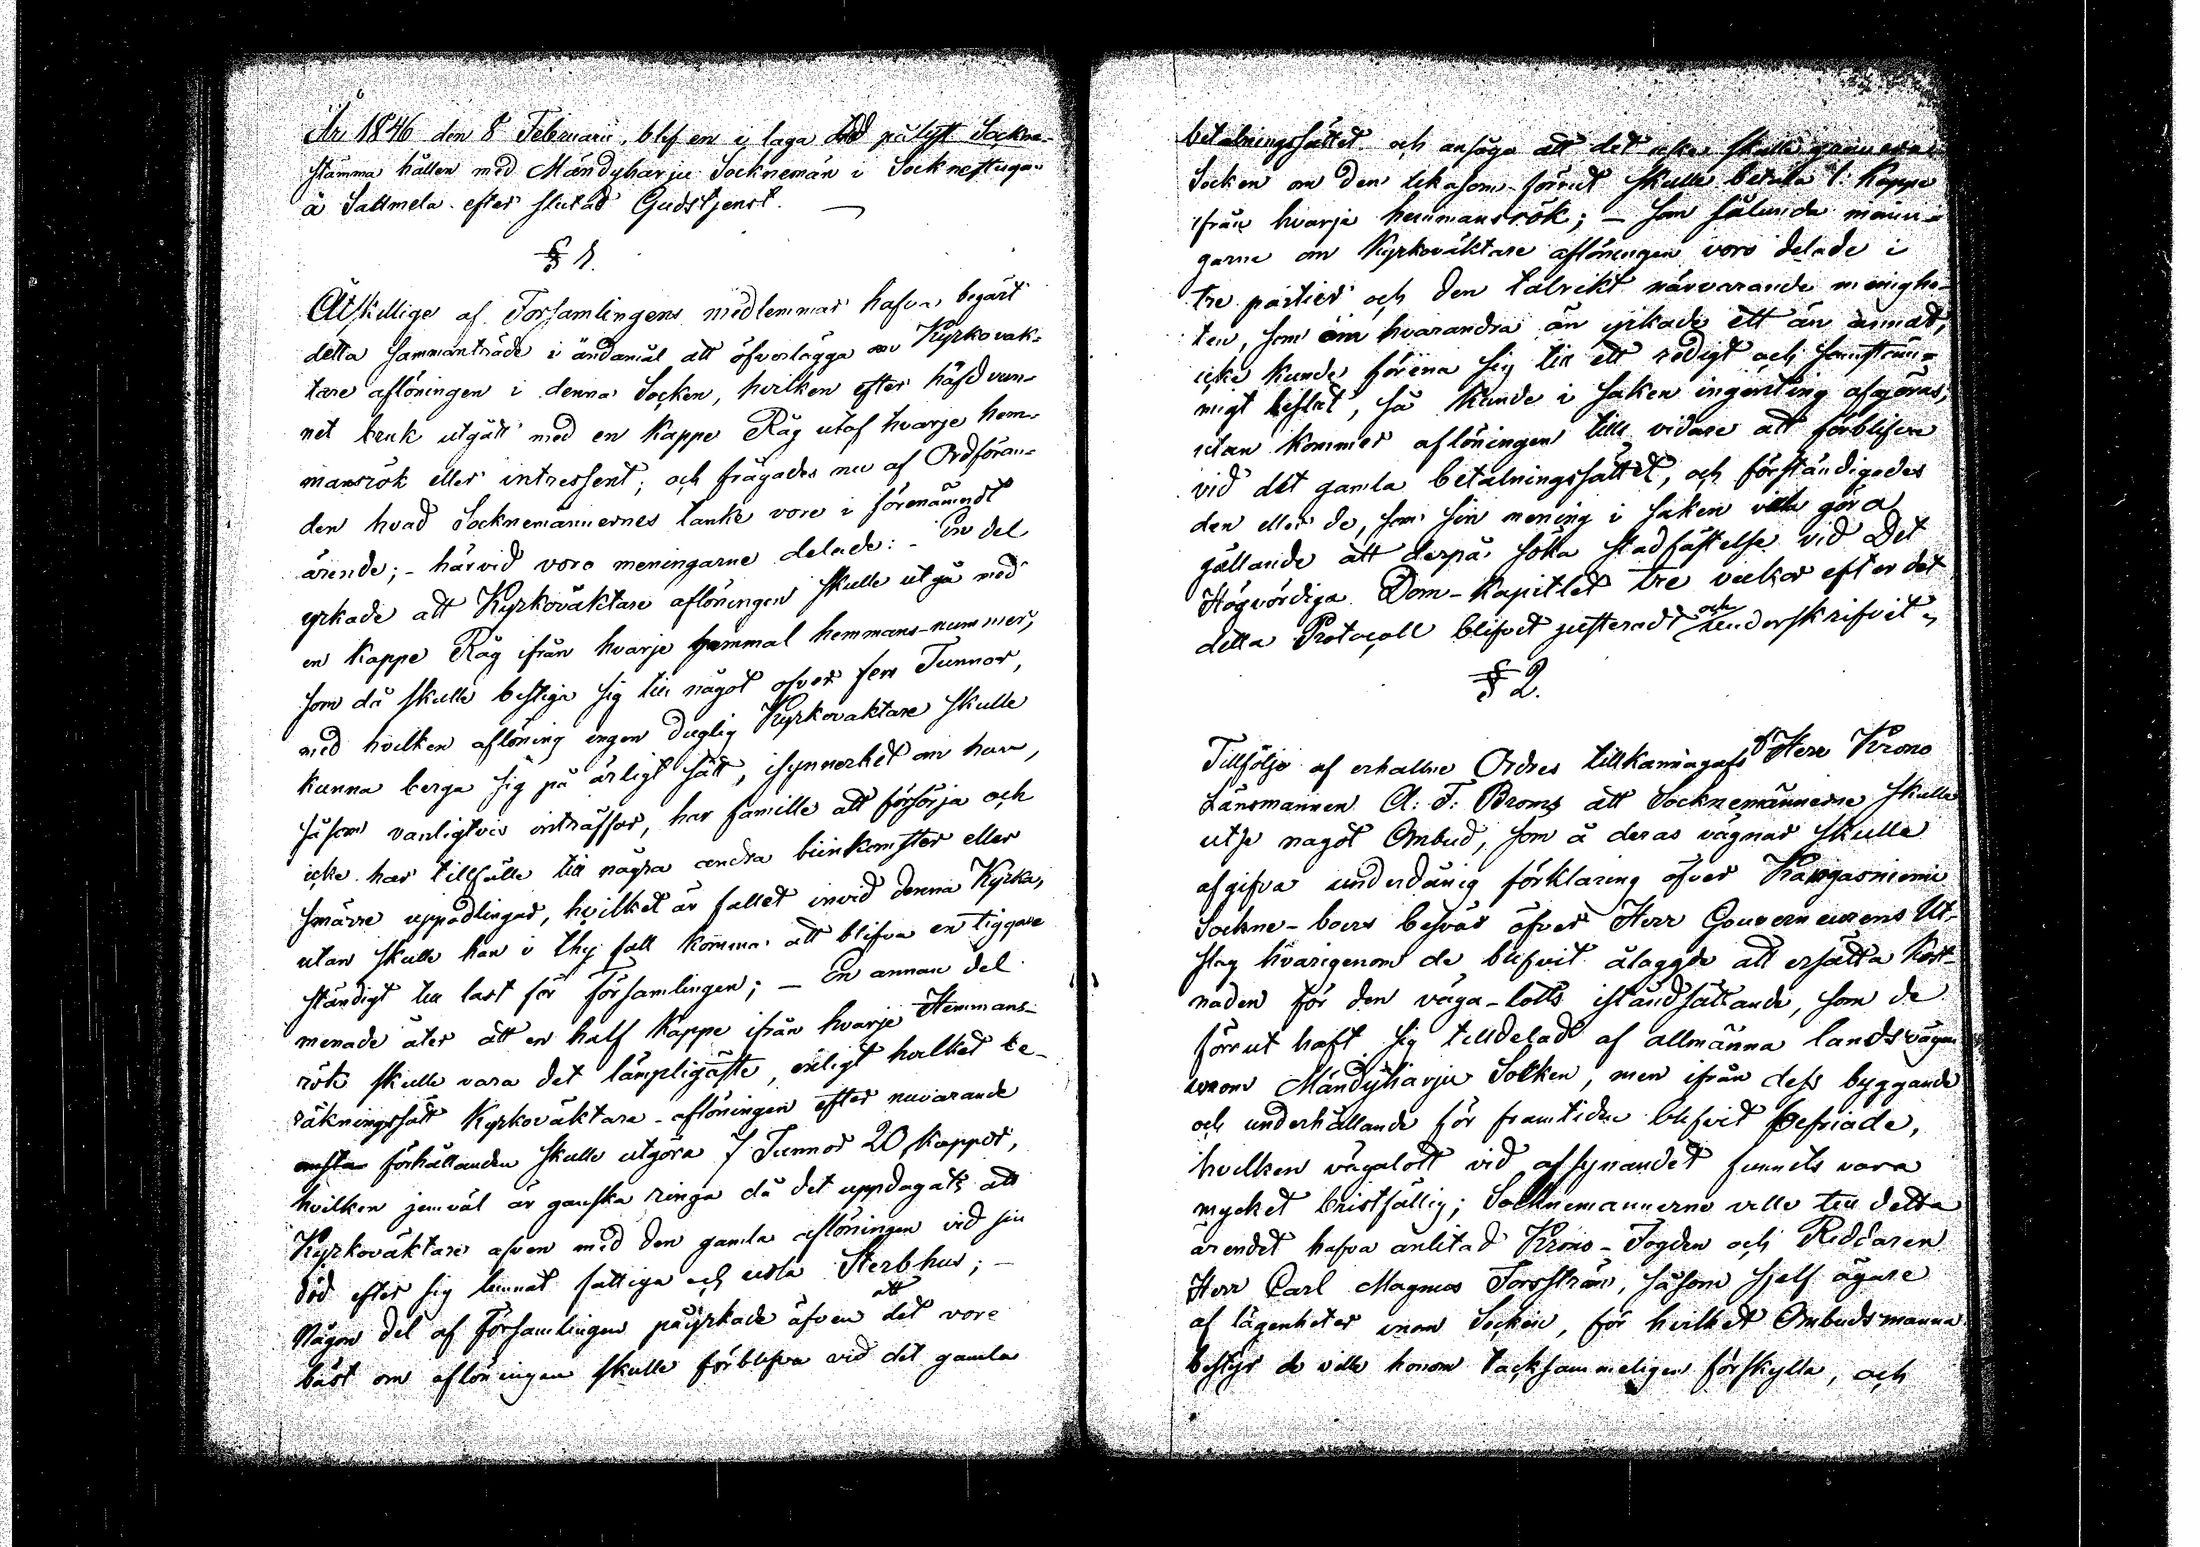 År 1846 den 8 Februarii, blef en i laga tid pålyst Sockne-
stämma hållen med Mändyharju Socknemän i Socknestugan
å Sallmela efter slutad Gudstjenst. —
§ 1.
Åtskillige af Församlingens medlemmar hafva begärt
detta sammanträde i ändamål att öfverlägga om Kyrkovak-
tare aflöningen i denna Socken, hvilken efter häfd vun-
net bruk utgått med en Kappe Råg utaf hvarje hem-
mansrök eller intressent; och frågades nu af Ordföran-
den hvad Socknemännernes tanke vore i förenämndt
ärende; - härvid voro meningarne delade: - En del
yrkade att Kyrkoväktare aflöningen skulle utgå med
en Kappe Råg ifrån hvarje gammal hemmans-nummer,
som då skulle bestiga sig till något öfver fem Tunnor,
med hvilken aflöning ingen duglig Kyrkovaktare skulle
kunna berga sig på ärligt sätt, isynnerhet om han,
såsom vanligtvis inträffar, har famille att försörja och
icke har tillfälle till några andra biinkomster eller
smärre uppodlingar, hvilket är fallet invid denna Kyrka,
utan skulle han i thy fall komma att blifva en tiggare
ständigt till last för Församlingen; — En annan del
menade åter att en half Kappe ifrån hvarje Hemmans-
rök skulle vara det lämpligaste, enligt hvilket be-
räkningssätt Kyrkoväktare-aflöningen efter nuvarande
förhållanden skulle utgöra 7 Tunnor 20 kappar,
hvilken jemväl är ganska ringa då det uppdagats att
Kyrkoväktare äfven med den gamla aflöningen vid sin
död efter sig lemnat fattiga och usla Sterbhus; —
Någon del af Församlingen påyrkade äfven att det vore
bäst om aflöningen skulle förblifva vid det gamla
betalningssättet och ansågo att det icke skulle gravera
Socken om den likasom förrut skulle betala 1 Kappe
ifrån hvarje hemmansrök; — som sålunda menin-
garne om Kyrkoväktare aflöningen voro delade i
tre partier och den talrikt närvarande menighe-
ten, som om hvarandra än yrkade ett än annat,
icke kunde förena sig till ett redigt och samstäm-
migt beslut, så kunde i saken ingenting afgöras,
utan kommer aflöningen tills vidare att förblifva
vid det gamla betalningssättet, och förständigades
den eller de, som sin mening i saken vilja göra
gällande att derpå söka stadfästelse vid Det
Högvördiga Dom-Kapitlet tre veckor efter det
detta Protocoll blifvit justeradt och underskrifvit.
§ 2.
Tillfölje af erhallne Ordres tillkännagafs af Herr Krono
Länsmannen A: F: Broms att Socknemännerne skulle
utse något Ombud, som å deras vägnar skulle
afgifva underdånig förklaring öfver Kangasniemi
Sockne-boers besvär öfver Herr Gouverneurens Ut-
slag hvarigenom de blifvit ålaggde att ersätta Kost-
naden för den väga-lotts iståndsättande, som de
förrut haft sig tilldelad af allmänna landsvägen
inom Mändyharju Socken, men ifrån dess byggande
och underhållande för framtiden blifvit befriade,
hvilken vägalott vid afsynandet funnits vara
mycket bristfällig; Socknemännerne ville till detta
ärendet hafva anlitad Krono-Fogden och Riddaren
Herr Carl Magnus Forsström, såsom sjelf ägare
af lägenheter inom Socken, för hvilket Ombudsmanna
bestyr de ville honom tacksammeligen förskylla, och